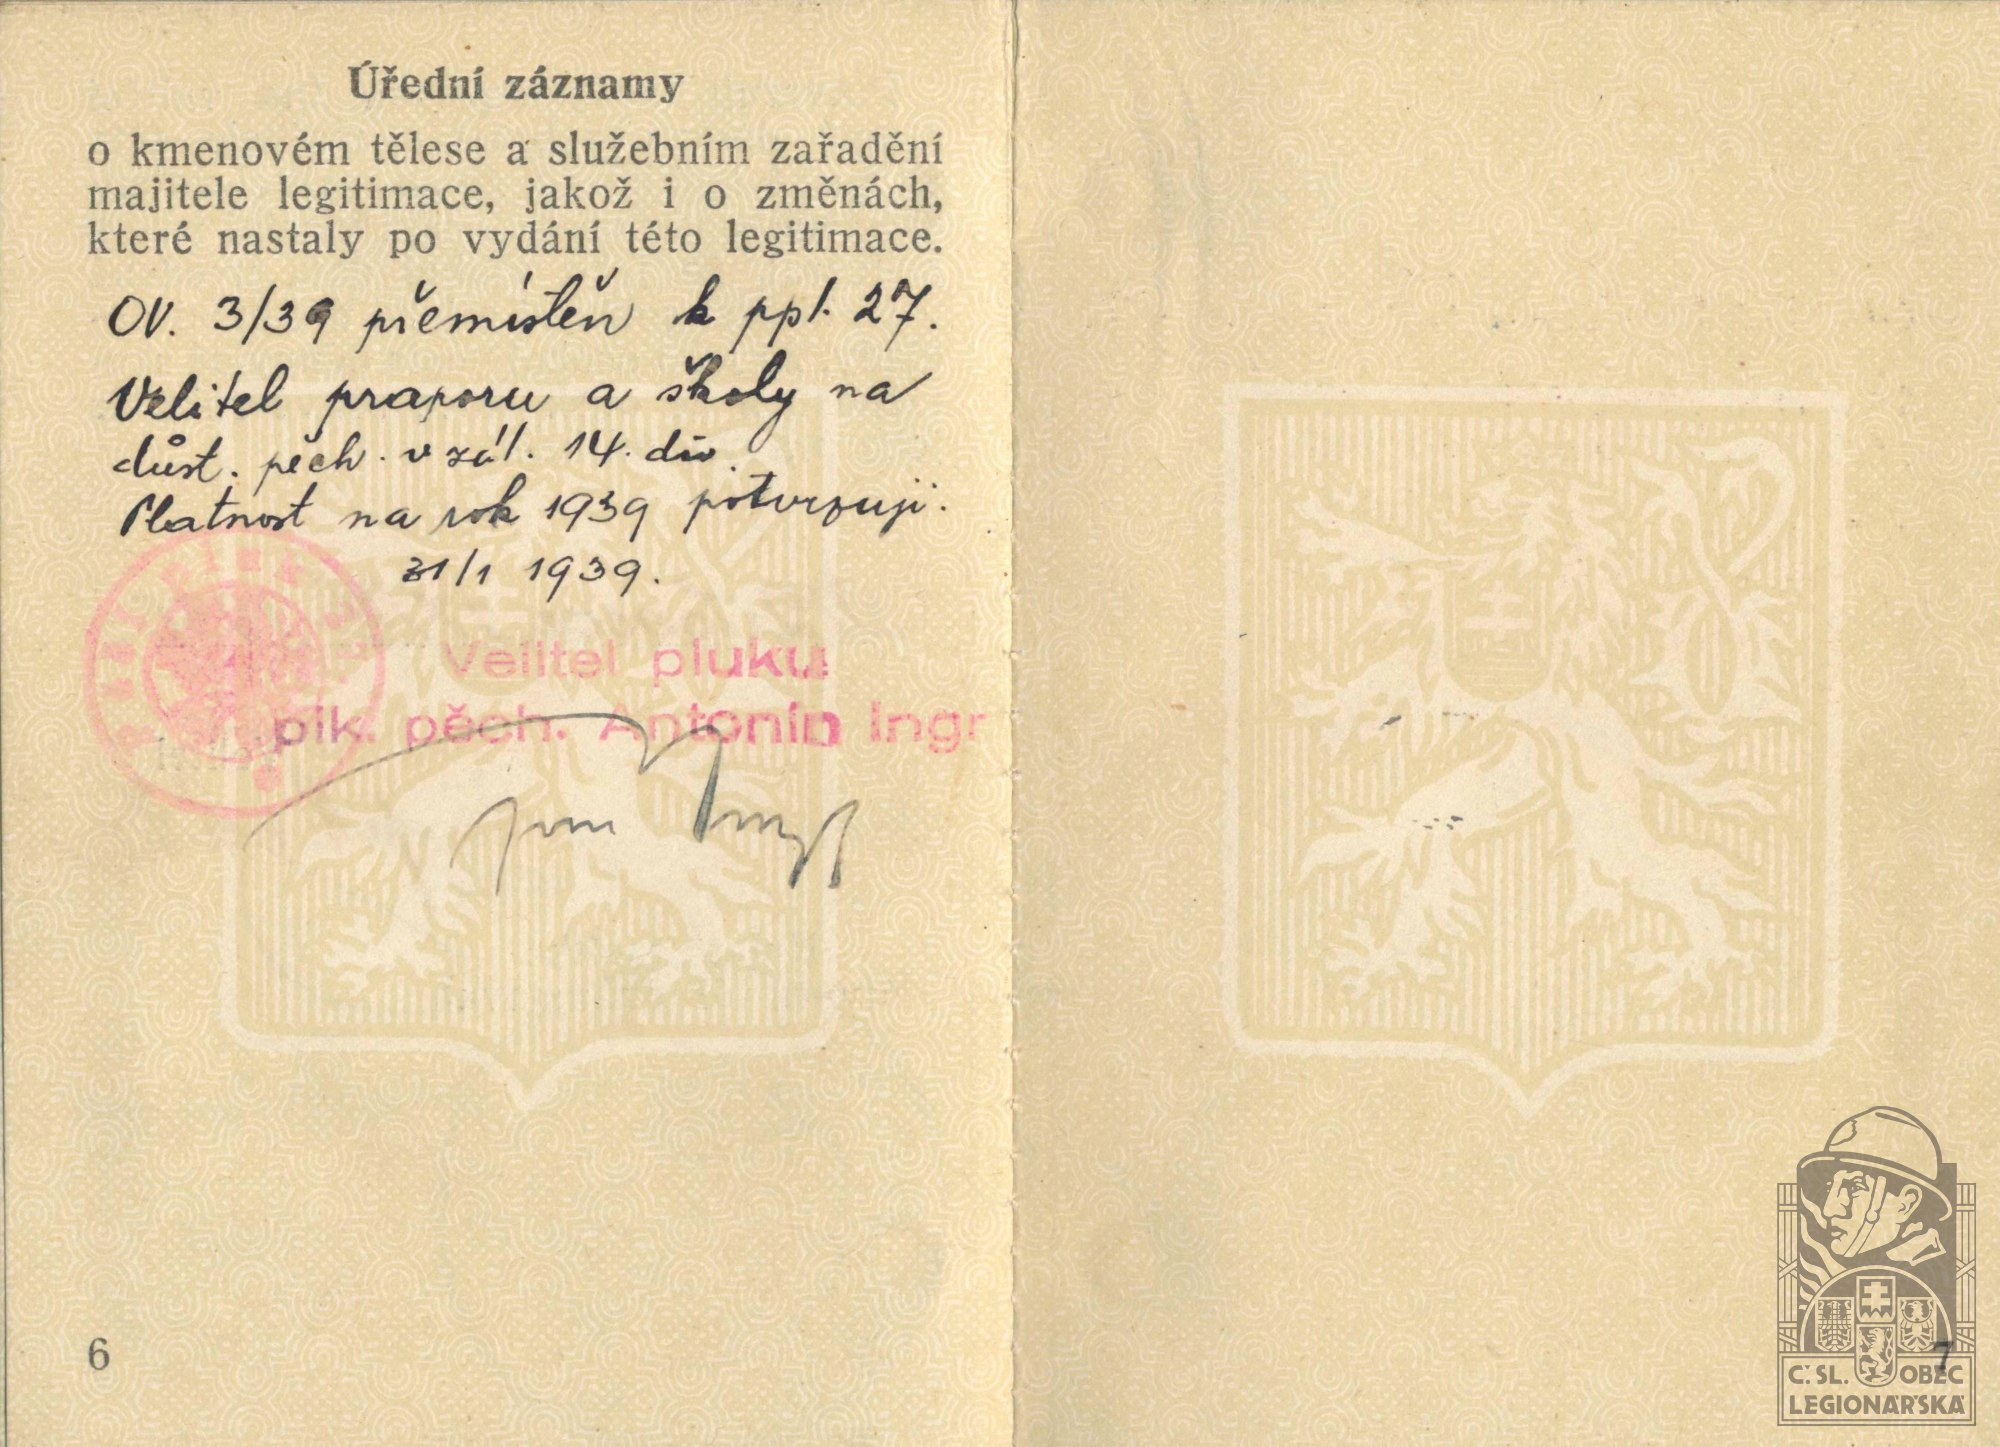 Úřední záznamy
o kmenovém tělese a služebním zařadění
majitele legitimace, jakož i o změnách,
které nastaly po vydání této legitimace.
OV. 3/39 přemístěn k ppl. 27.
Velitel praporu a školy na
důst. pěch. v zál. 14. div.
Platnost na rok 1939 potvrzuji.
31/1 1939.
Velitel pluku
plk. pěch. Antonín Ingr
6
7
Č. SL. OBEC
LEGIONÁŘSKÁ